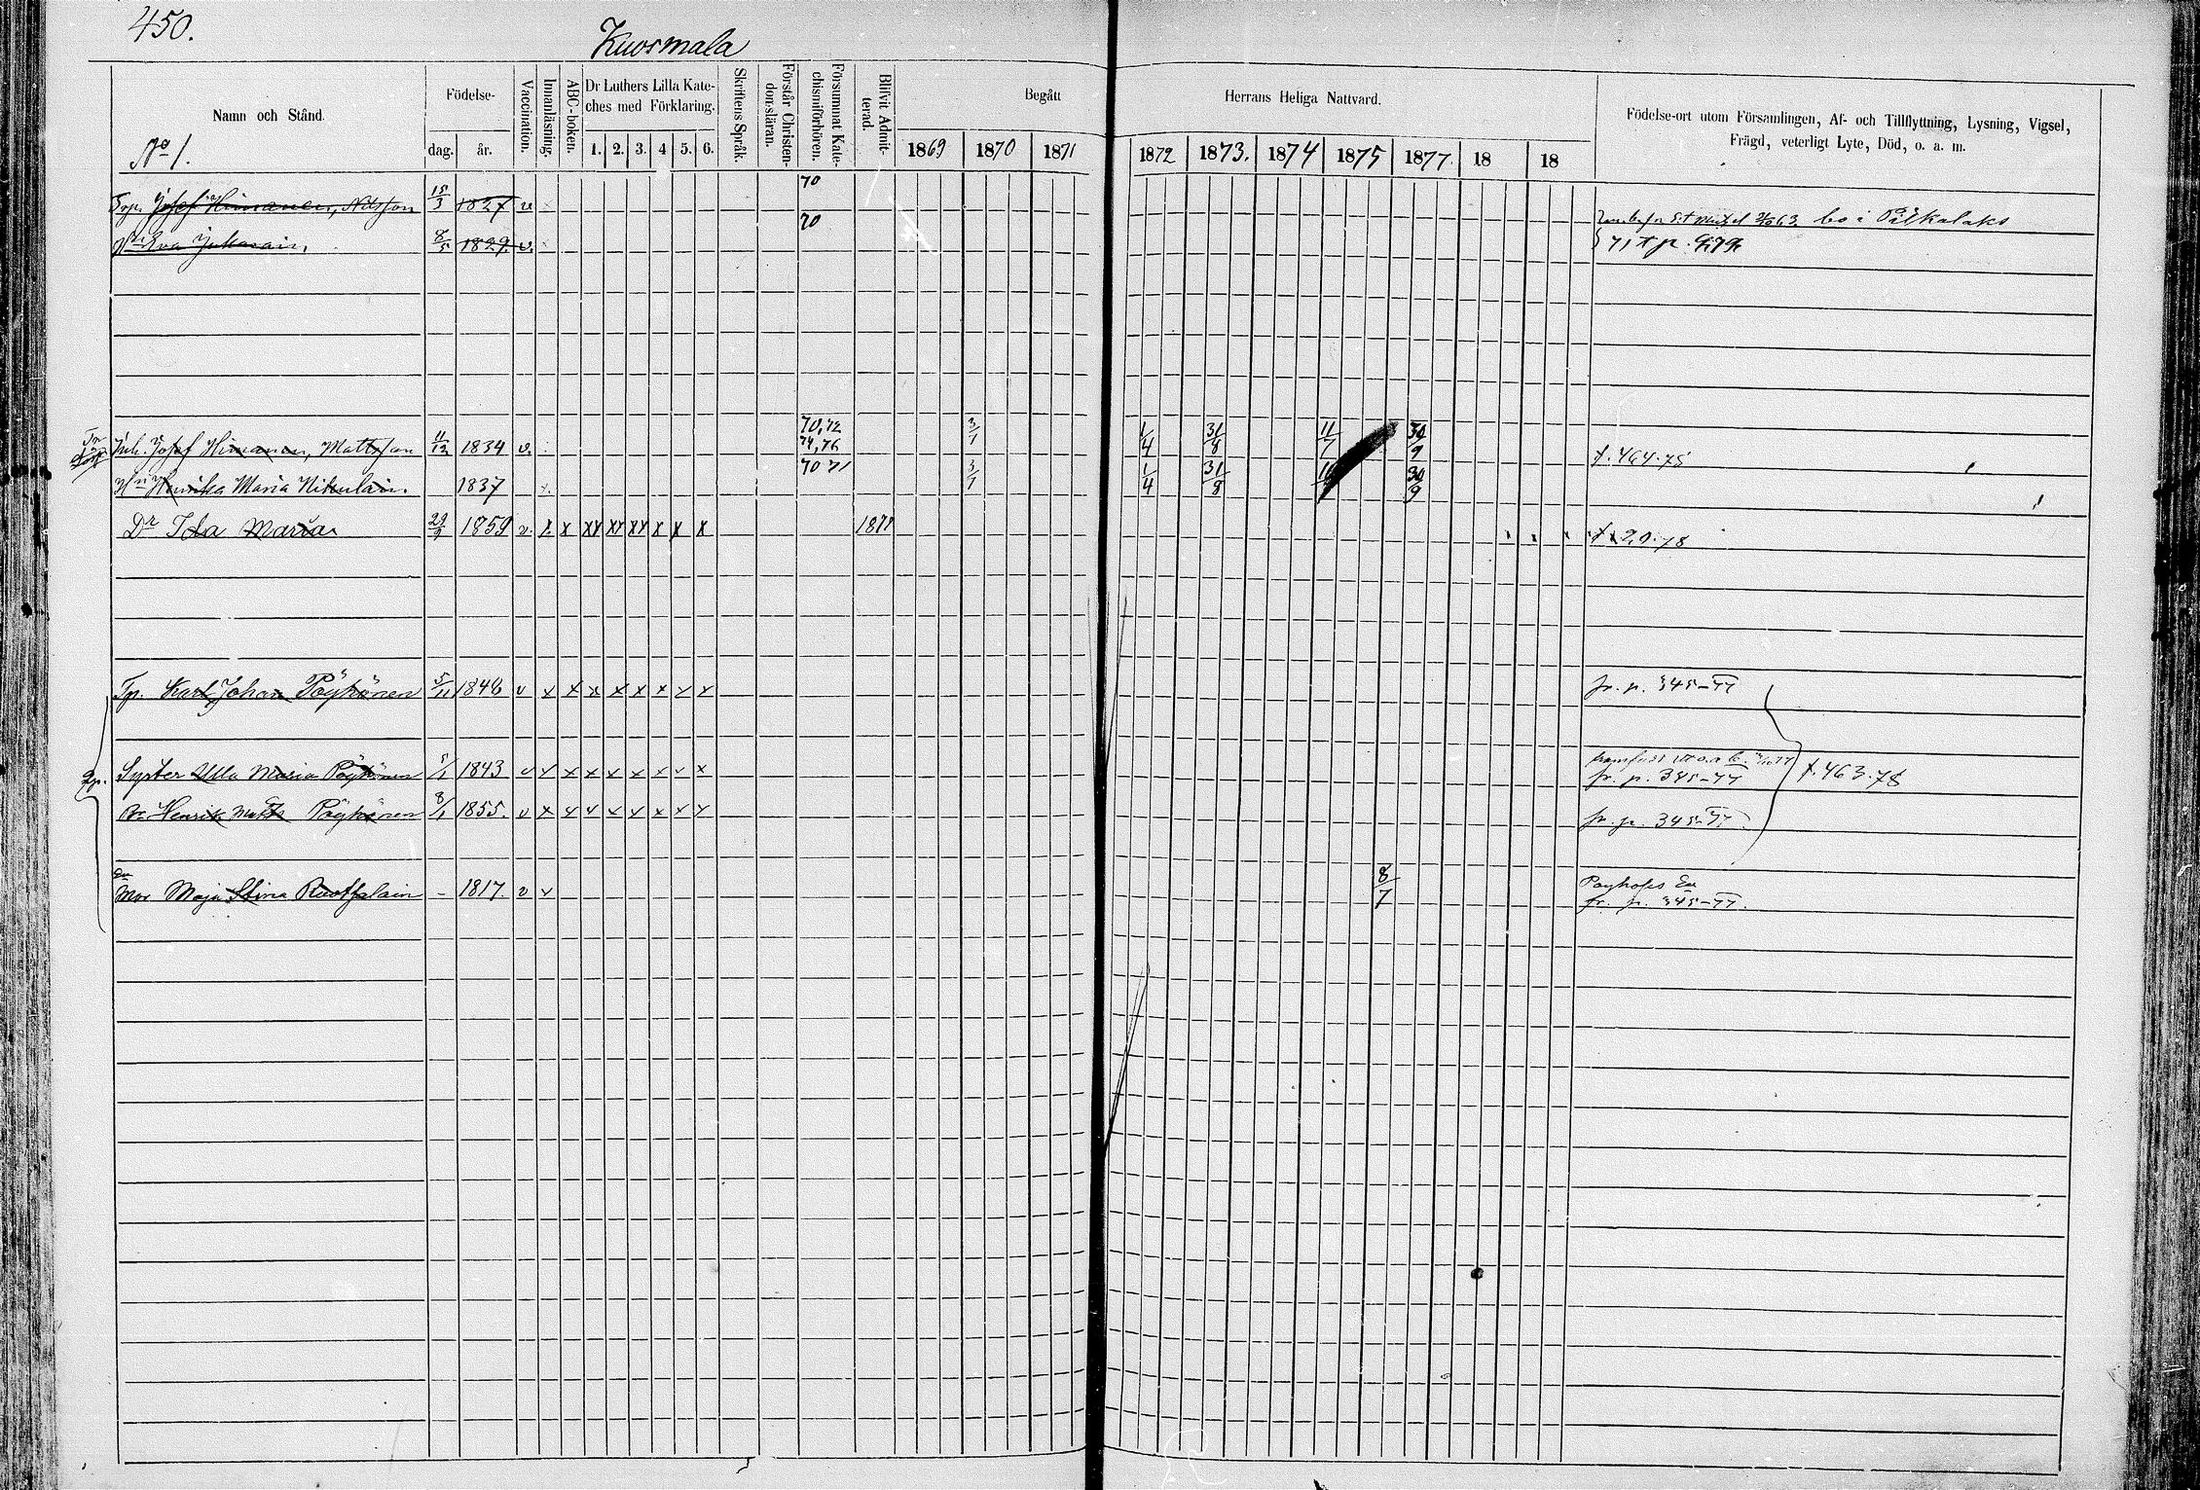 450.
Kuosmala
Namn och Stånd.
No 1.
Födelse-
dag.
år.
Vaccination.
Innanläsning.
ABC-boken.
Dr Luthers Lilla Kate-
ches med Förklaring.
1. 2. 3. 4 5. 6.
Skriftens Språk.
Förstår Christen-
domsläran.
Försummat Kate-
chismiförhören.
Blifvit Admit-
terad.
Begått
Herrans Heliga Nattvard.
1869 1870 1871
1872 1873. 1874 1875 1877. 18 18
Födelse-ort utom Församlingen, Af- och Tillflyttning, Lysning, Vigsel,
Frägd, veterligt Lyte, Död, o. a. m.
Josef Himanen, Nilsson 15/3 1827 v 70
S:t Michel bo i Pitkälaks
Eva Jukarain. 8/5 1829 v. 70
71 t p.
Inh. Josef Himanen, Mattsson 11/12 1834 v. 70,72 74,76 3/1 1/4 31/8 11/7 30/9 t. 464.78
Hu Henrika Maria Nikulain. 1837 x. 70 71 3/1 1/4 31/8 30/9
Dr Ida Maria 1859 v. x x xx xx xx x x x t 20.78
Tp. Karl Johan Pöyhönen 5/11 1846 v x x x x x x x x fr. p. 345-77
Syster Ulla Maria Pöyhönen 5/1 1843 v x x x x x x x x
fr. p. 345-77 t. 463.78
Br Henrik Matts Pöyhönen 8/1 1855. v x x x x x x x x fr. p. 345-77
Mor Maja Stina - 1817 v x 8/7
Enk
fr. p. 345-77.